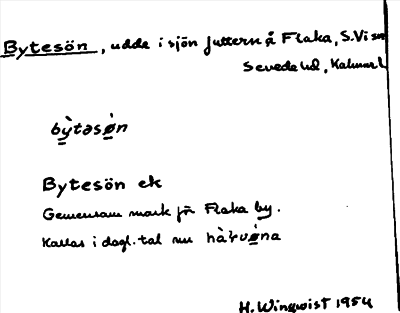 Bytesön, udde i sjön Juttern å Flaka, S. Vi sn
Sevede hd, Kalmar l
bỳtəsø̀n
Bytesön ek
Gemensam mark för Flaka by.
Kallas i dagl. tal nu
H. Wingwist 1954